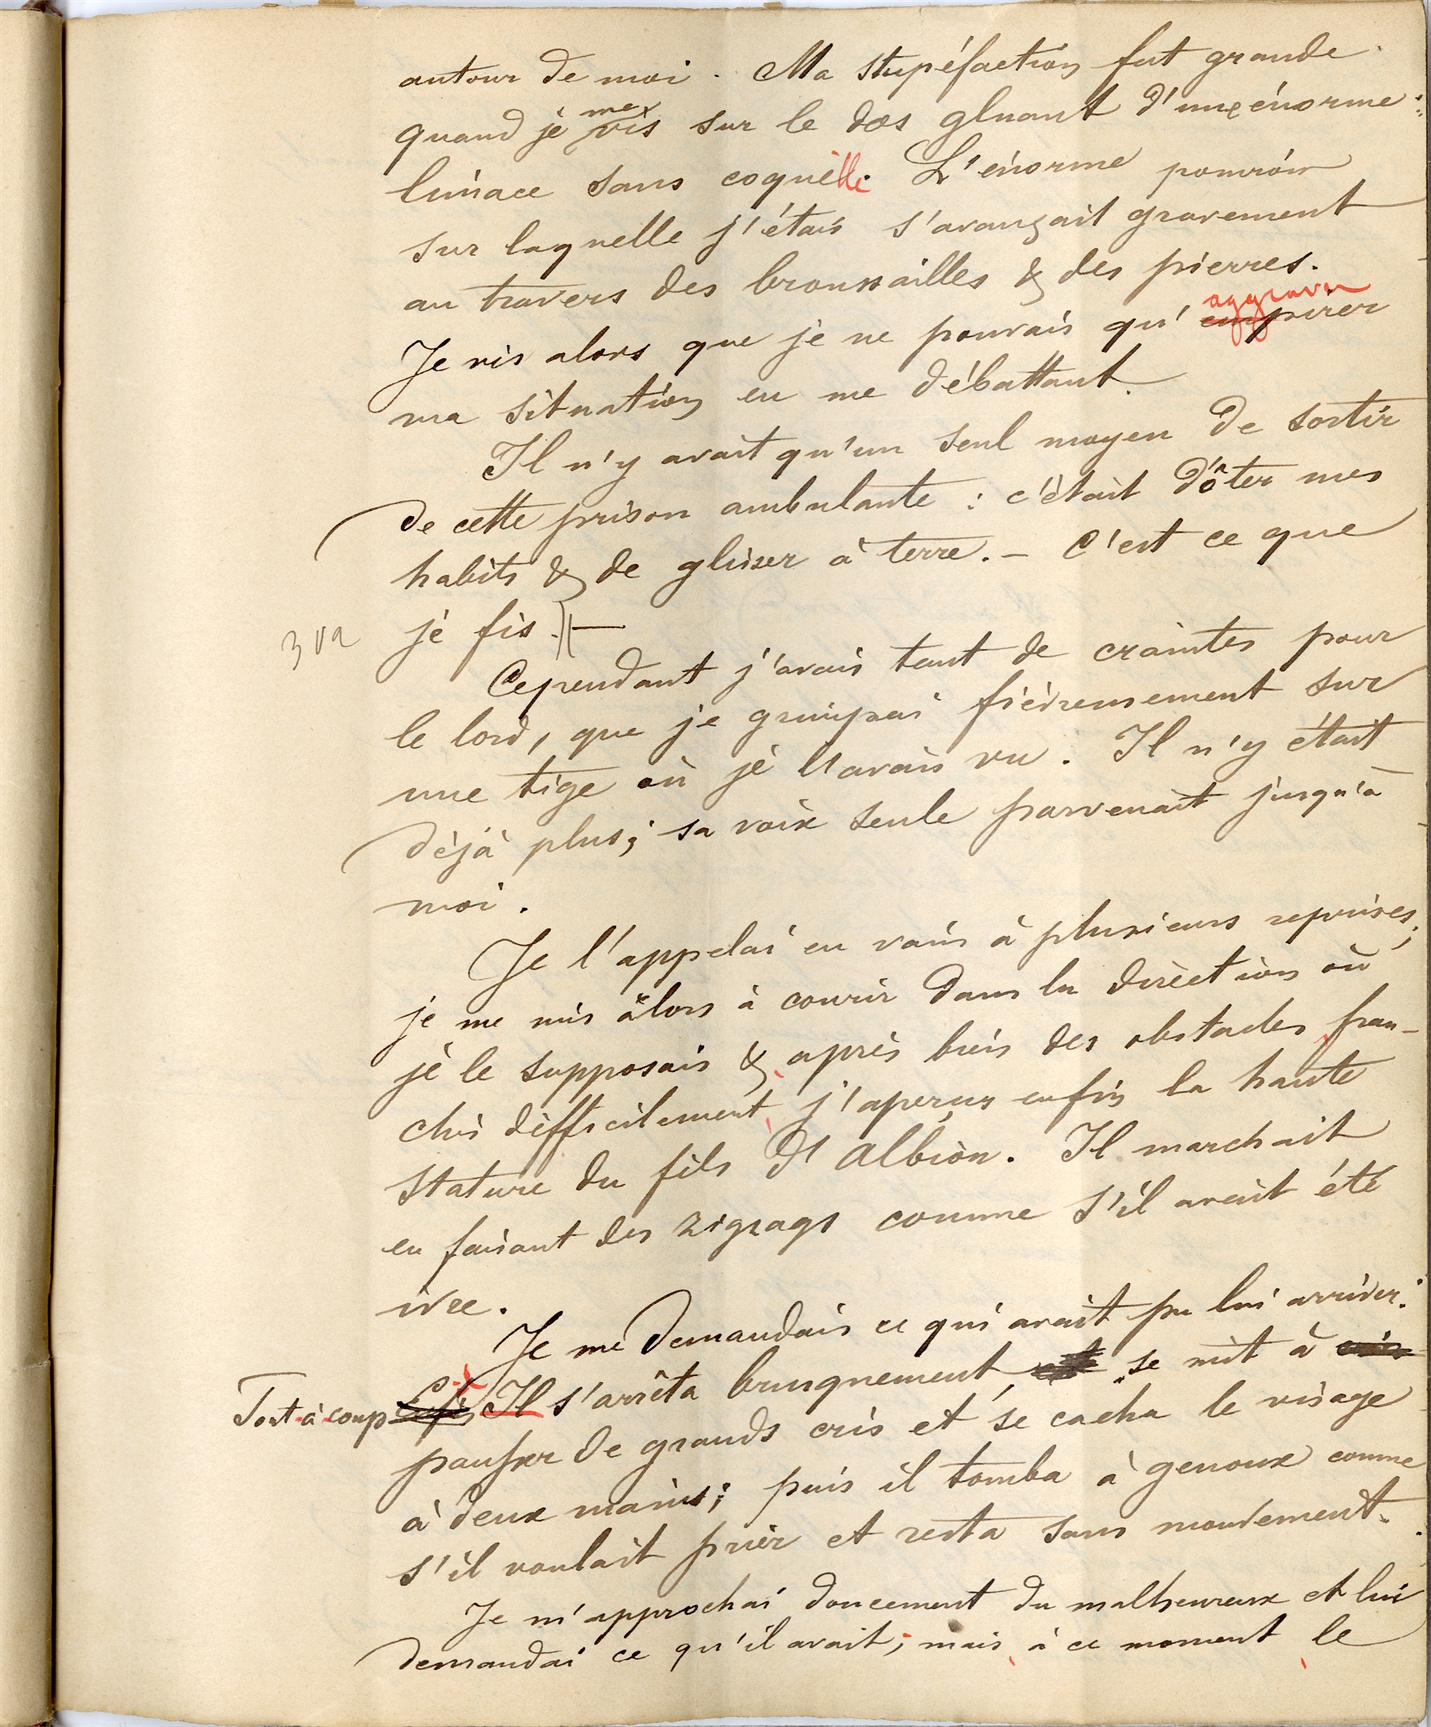 autour de moi. Ma stupéfaction fut grande
quand je me vis sur le dos gluant d'une énorme
limace sans coquille. L'énorme
sur laquelle j'étais s'avançait gravement
au travers des broussailles & des pierres.
aggraver
Je vis alors que je ne pouvais qu'empirer
ma situation en me débattant.
Il n'y avait qu'un seul moyen de sortir
de cette prison ambulante : c'était d'ôter mes
habits & de glisser à terre. — C'est ce que
je fis. —
Cependant j'avais tant de craintes pour
le lord, que je grimpai fiévreusement sur
une tige où je l'avais vu. Il n'y était
déjà plus; sa voix seule parvenait jusqu'à
moi.
Je l'appelai en vain à plusieurs reprises;
je me mis alors à courir dans la direction où
je le supposais & après bien des obstacles fran-
chis difficilement, j'aperçus enfin la haute
stature du fils d'Albion. Il marchait
en faisant des zigzags comme s'il avait été
ivre.
Je me demandais ce qui avait pu lui arriver.
Tout-à-coup Il s'arrêta brusquement, se mit à
pousser de grands cris et se cacha le visage
à deux mains; puis il tomba à genoux comme
s'il voulait prier et resta sans mouvement.
Je m'approchai doucement du malheureux et lui
demandai ce qu'il avait; mais, à ce moment, le